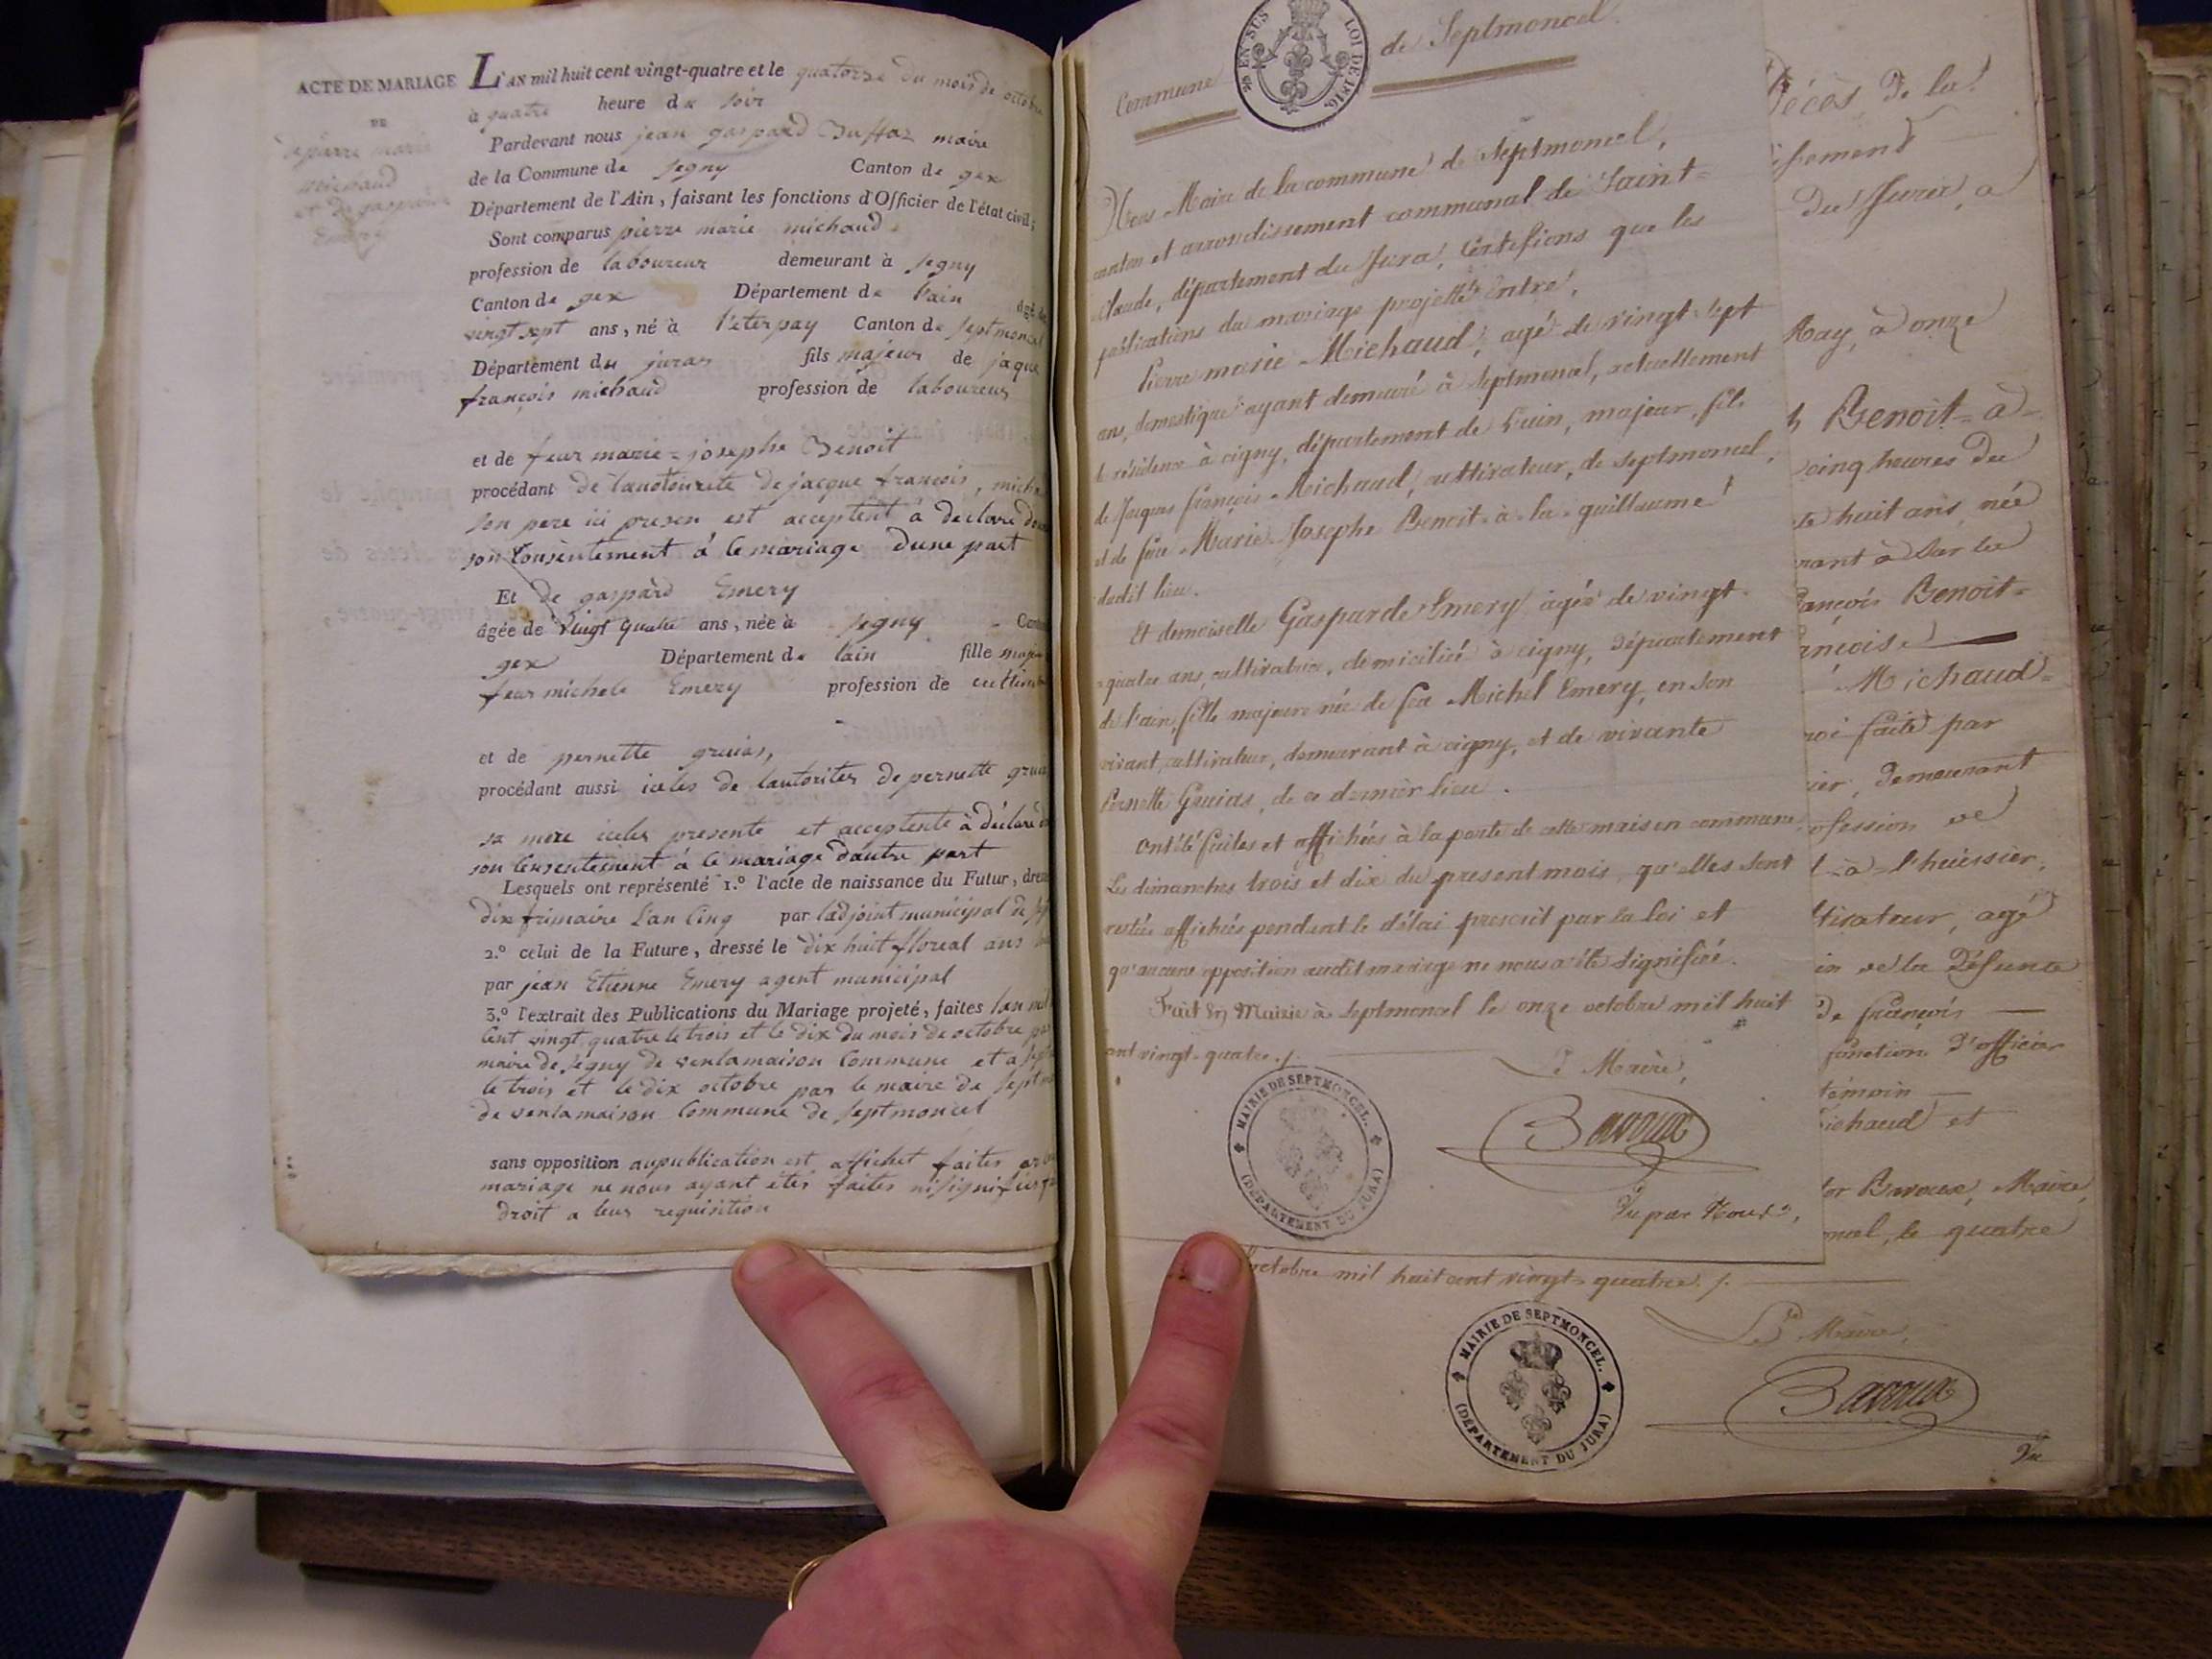 ACTE DE MARIAGE
DE
de pierre marie
michaud
et de gasparde
Emery
L'AN mil huit cent vingt-quatre et le quatorze du mois de octobre
à quatre heure de soir
Pardevant nous jean gaspard Buffaz maire
de la Commune de segny Canton de gex
Département de l'Ain, faisant les fonctions d'Officier de l'état civil;
Sont comparus pierre marie michaud
profession de laboureur demeurant à segny
Canton de gex Département de l'ain âgé de
vingt sept ans, né à l'éterpay Canton de septmoncel
Département du juras fils majeur de jaque
françois michaud profession de laboureur
et de feux marie=josephe Benoit
procédant de lauotourite de jacque francois, mich
son pere ici presen est acceptent à declare
son Consentement à ce mariage dune part
Et de gaspard Emery
âgée de vingt quatre ans, née à segny Can
gex Département de lain fille maje
feux michele Emery profession de cultiv
et de pernette gruias,
procédant aussi iceles de lautorites de pernette grui
sa mere iceles presente et acceptente à déclare
son Consentement à ce mariage dautre part
Lesquels ont représenté 1.º l'acte de naissance du Futur, dres
dix frimaire L'an Cinq par ladjoint municipal de sep
2.º celui de la Future, dressé le dix huit floreal ans
par jean Etienne Emery agent municipal
3.º l'extrait des Publications du Mariage projeté, faites lan mil
Cent vingt quatre le trois et le dix du mois de octobre par
maire de segny de venlamaison Commune et a sept
le trois et le dix octobre par le maire de septm
de venlamaison Commune de septmoncel
sans opposition aupublication est affichet faites
mariage ne nous ayant étés faites ni signifies
droit a leur requisition
EN SUS
LOI DE 1816
Commune de Septmoncel.
Nous Maire de la commune de Septmoncel,
canton et arrondissement communal de Saint=
Claude, département du Jura, Certifions que les
publications du mariage projetté Entre,
Pierre marie Michaud, agé de vingt-sept
ans, domestique ayant demeuré à Septmoncel, actuellement
de résidence à cigny, département de l'ain, majeur, fils
de Jacques françois Michaud, cultivateur, de septmoncel,
et de feue Marie Josephe Benoit-à-la-guillaume
dudit lieu.
Et demoiselle Gasparde Emery agée de vingt-
quatre ans, cultivatrice, domiciliée à cigny, Département
de l'ain, fille majeure née de feu Michel Emery, en son
vivant, cultivateur, demeurant à cigny, et de vivante
Pernette Gruias, de ce dernier lieu.
Ont été faites et affichées à la porte de cette maison commune,
Les dimanches trois et dix du present mois, qu'elles sont
restées affichées pendant le délai prescrit par la loi et
qu'aucune opposition audit mariage ne nous a été signifiée.
Fait En Mairie à Septmoncel le onze octobre mil huit
cent vingt-quatre ./.
Maire,
MAIRIE DE SEPTMONCEL.
(DEPARTEMENT DU JURA)
Bavoux
Vu par Nous
Décès, de la
issement
du Jura, a
Ray, à onze
h Benoit=à=
cinq heures du
te huit ans, née
rant à Sur les
françois Benoit=
ancoise
Michaud=
roi faite par
ier, Demeurant
ofession de
t-à-l'huissier,
tivateur, agé
in de la Défunte
De françois
fonction D'officier
témoin
ichaud et
tor Bavoux, Maire,
ncel, le quatre
octobre mil huit cent vingt-quatre ./.
MAIRIE DE SEPTMONCEL.
(DEPARTEMENT DU JURA)
Le Maire,
Bavoux
Vu